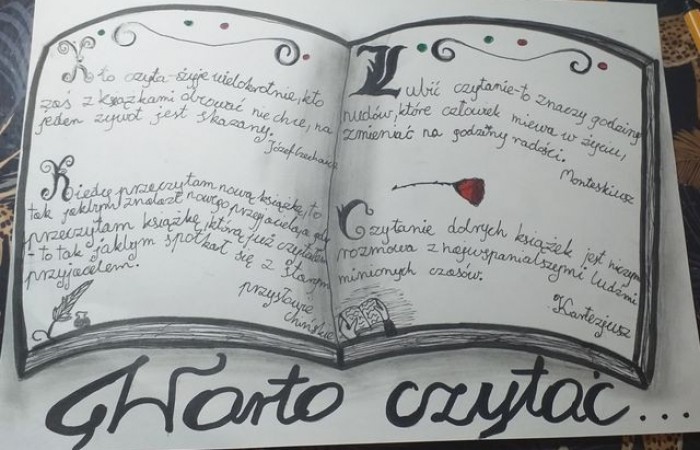 Kto czyta-żyje wielokrotnie, kto
zaś z książkami obcować nie chce, na
jeden żywot jest skazany.
Józef Czechowicz
Kiedy przeczytam nową książkę, to
tak jakbym znalazł nowego przyjaciela, gdy
przeczytam książkę, którą już czytałem
- to tak jakbym spotkał się z starym
przyjacielem.
przysłowie
chińskie
Lubić czytanie-to znaczy godziny
nudów, które człowiek miewa w życiu,
zmieniać na godziny radości.
Monteskiusz
Czytanie dobrych książek jest niczym
rozmowa z najwspanialszymi ludźmi
minionych czasów.
Kartezjusz
Warto czytać...